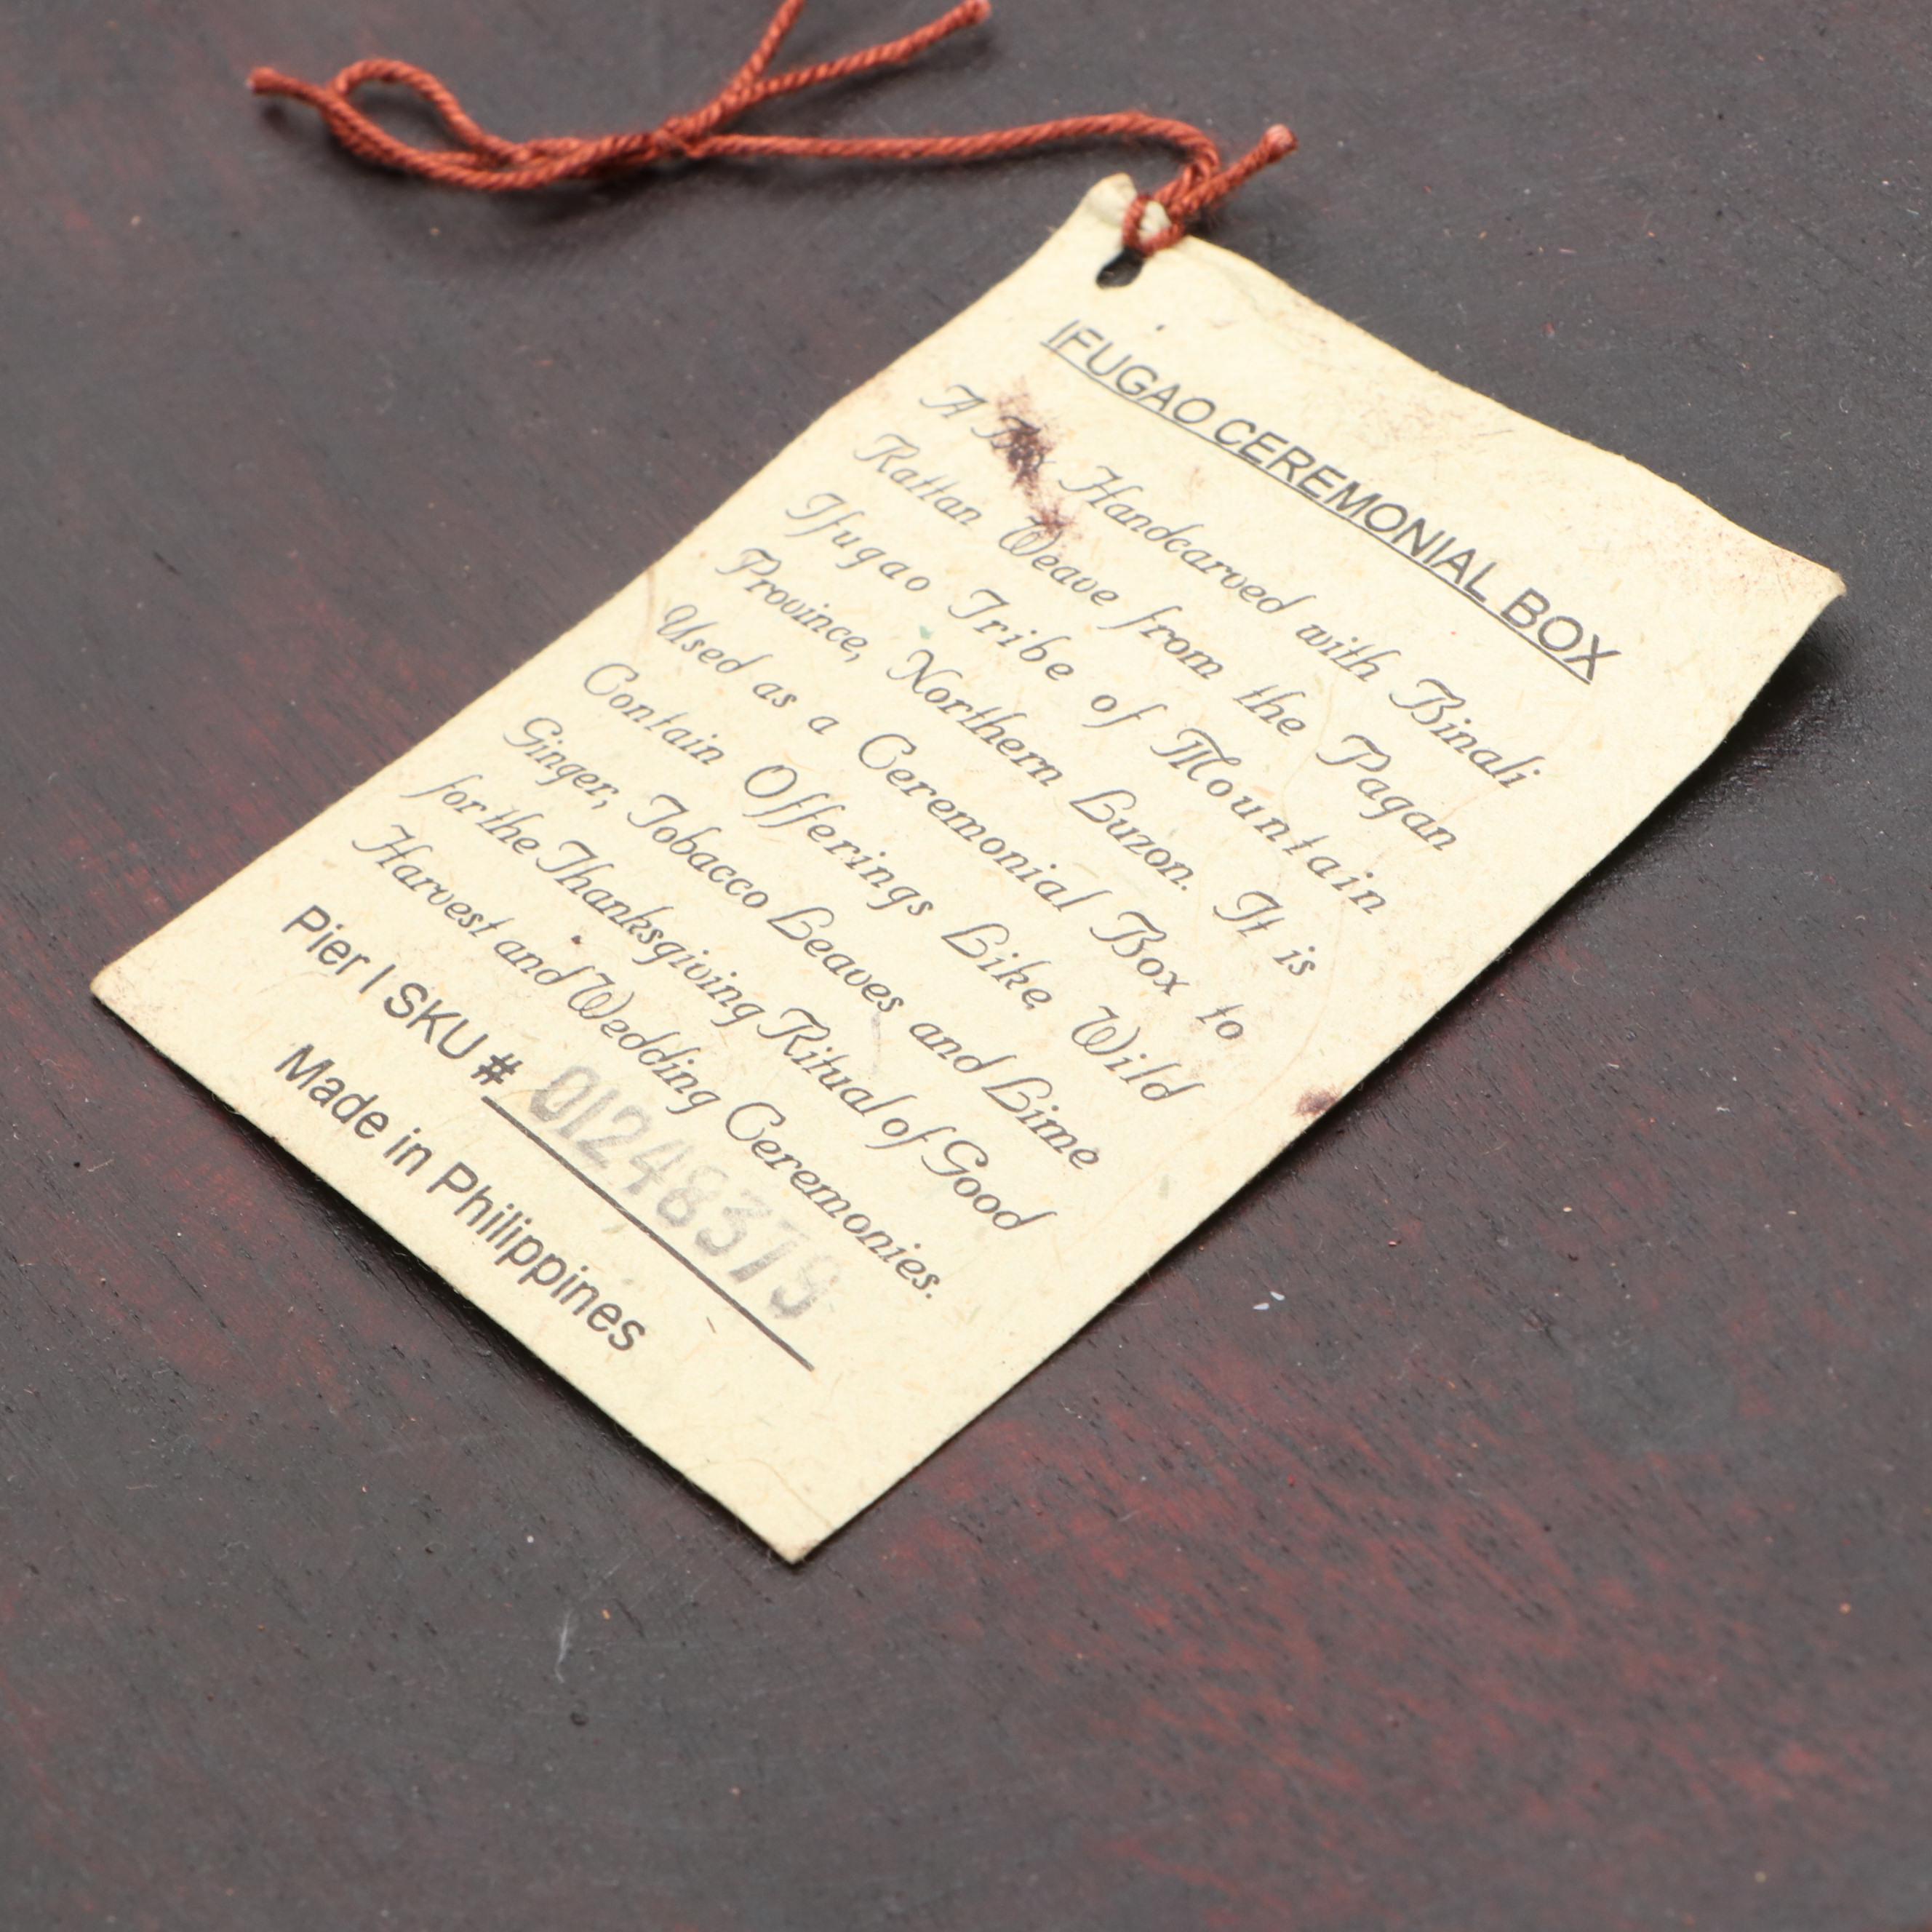 IFUGAO CEREMONIAL BOX
A Box Handcarved with Binali
Rattan Weave from the Pagan
Ifugao Tribe of Mountain
Province, Northern Luzon. It is
Used as a Ceremonial Box to
Contain Offerings Like Wild
Ginger, Tobacco Leaves and Lime
for the Thanksgiving Ritual of Good
Harvest and Wedding Ceremonies.
Pier I SKU # 01248379
Made in Philippines